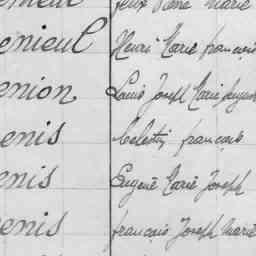 Felix Pierre Marie
enieul Henri Marie françois
enion Louis Joseph Marie
enis Celestin françois
enis Eugene Marie Joseph
enis françois Joseph Marie